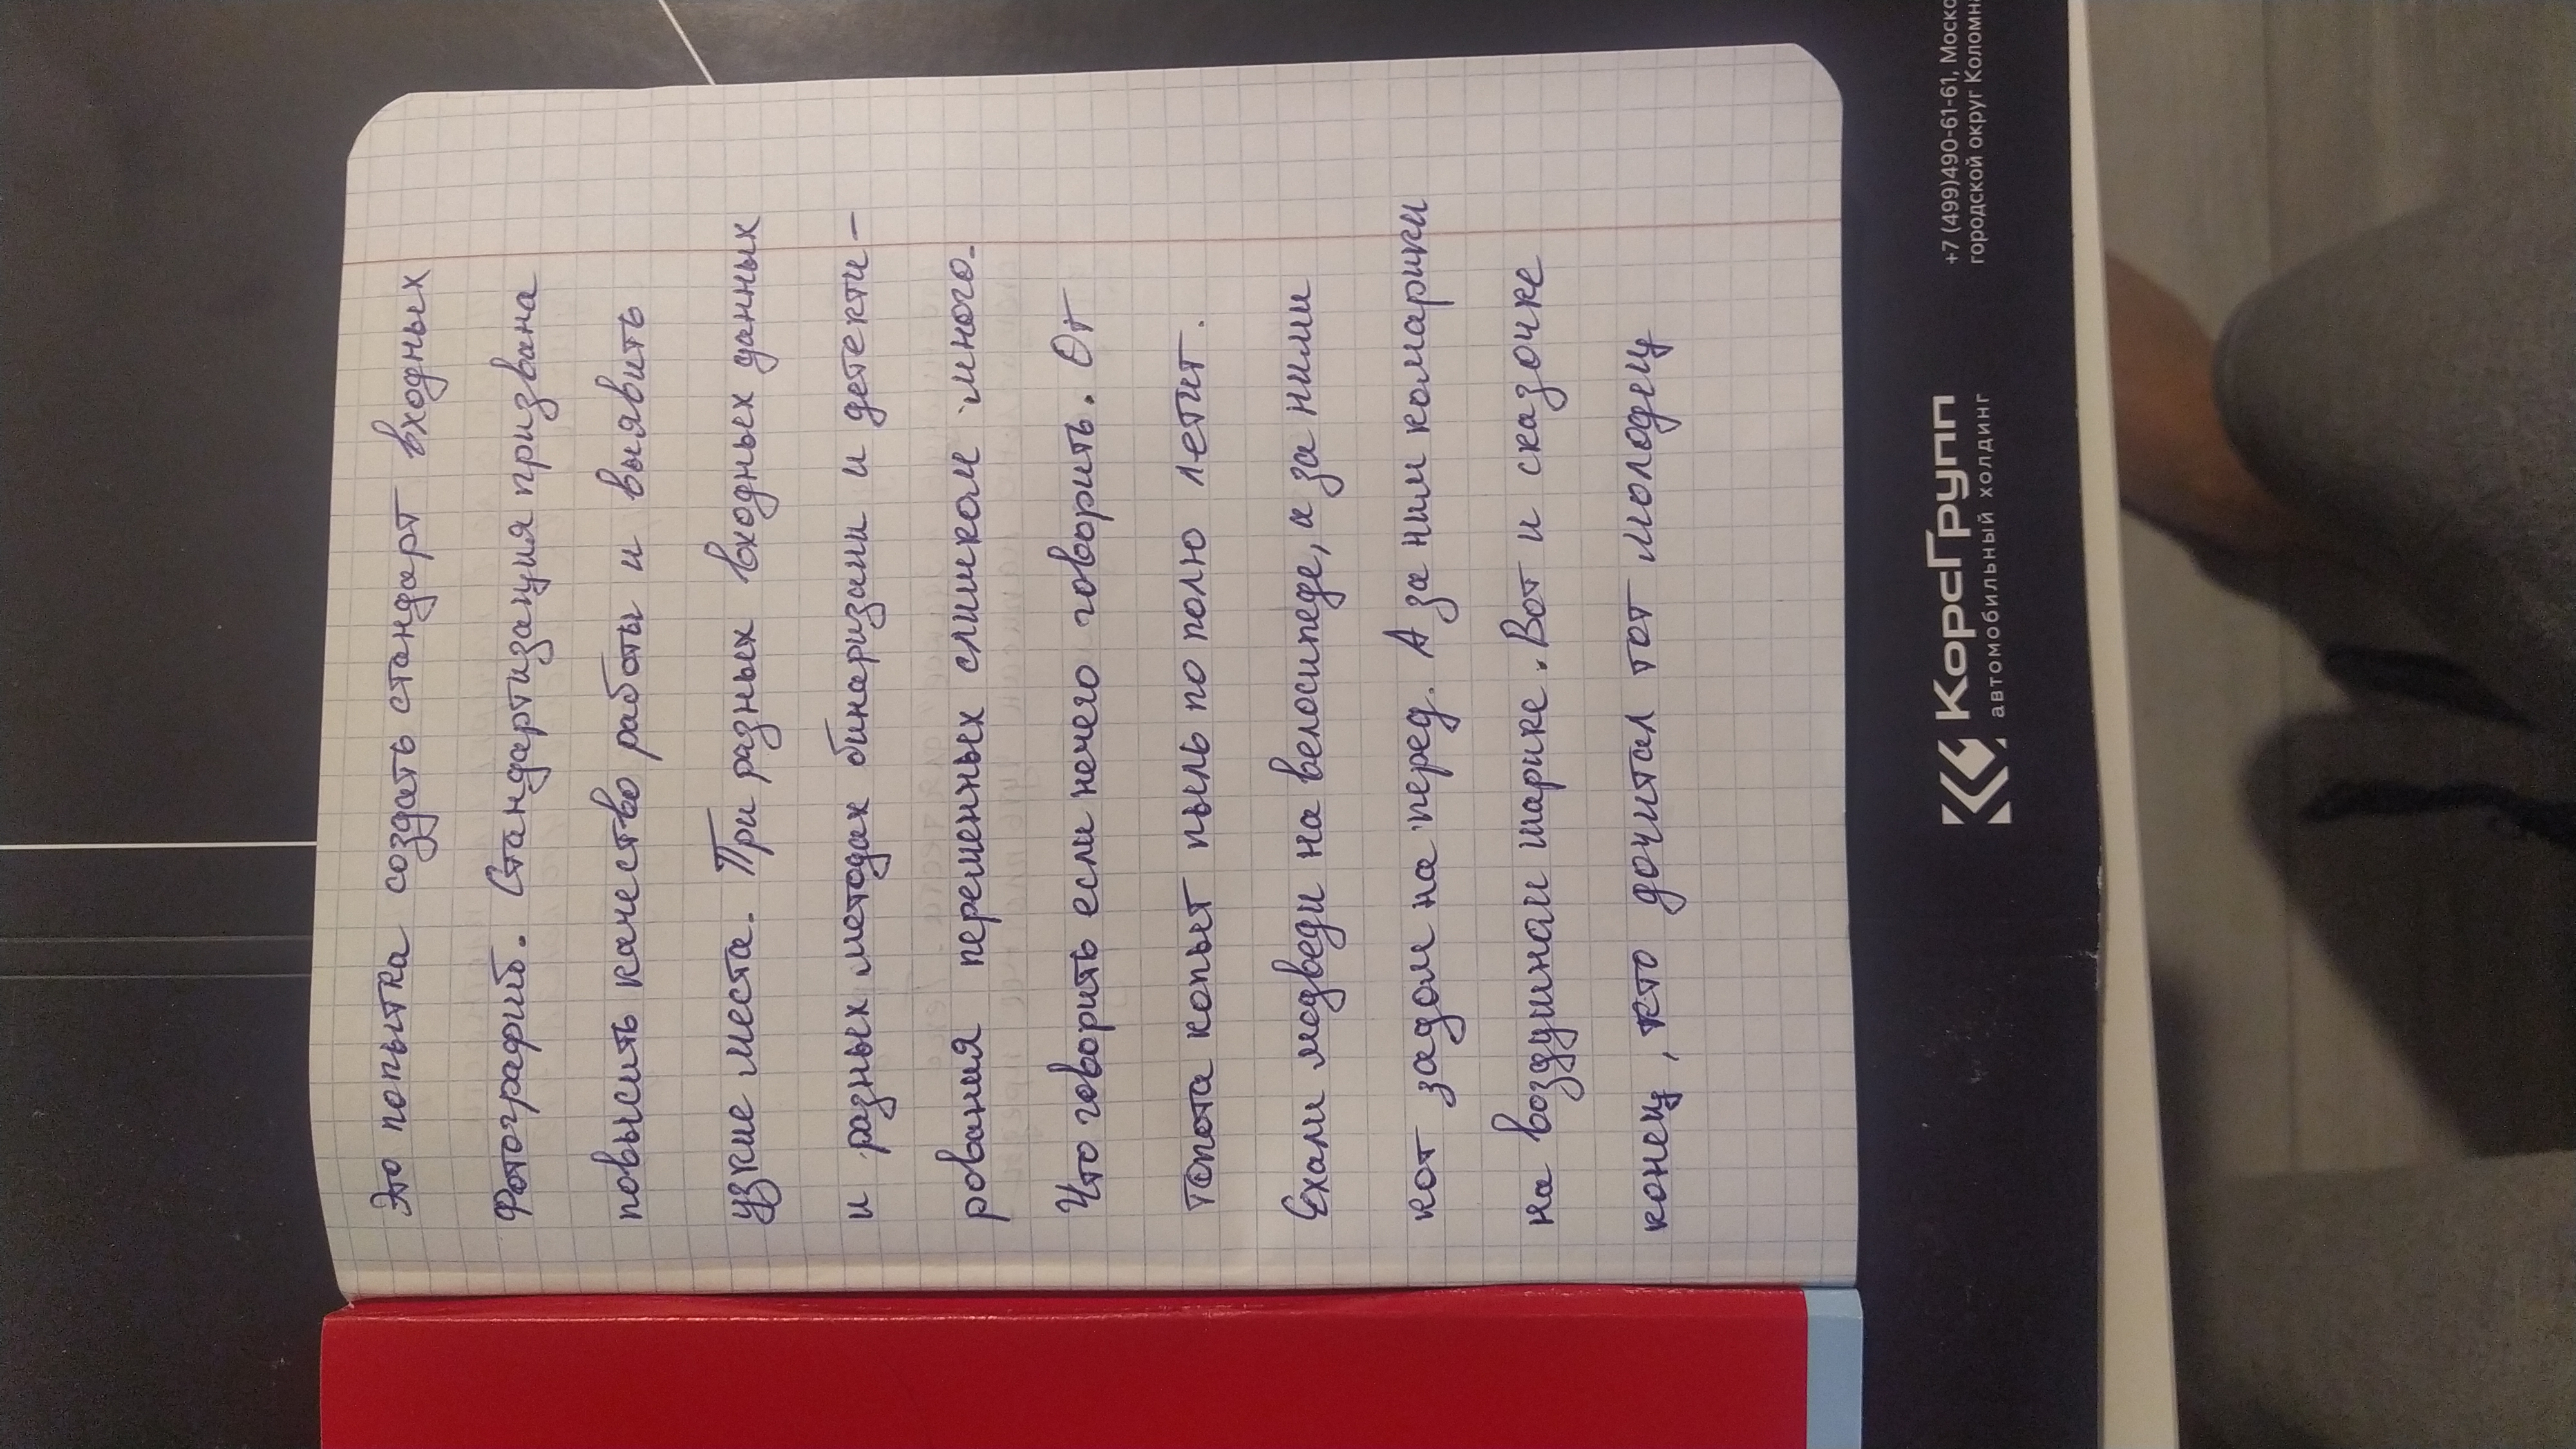 Это попытка создать стандарт входных
Фотографий. Стандартизация призвана
повысить качество работы и выявить
узкие места. При разных входных данных
и разных методах бинаризаии и детекти-
рования переменных слишком много.
Что говорить если нечего говорить. От
топота копыт пыль по полю летит.
Ехали медведи на велосипеде, а за ними
кот задом на перед. А за ним комарики
на воздушном шарике. Вот и сказочке
конец, кто дочитал тот молодец
КорсГрупп
автомобильный холдинг
+7 (499)490-61-61, Моско
городской округ Коломна